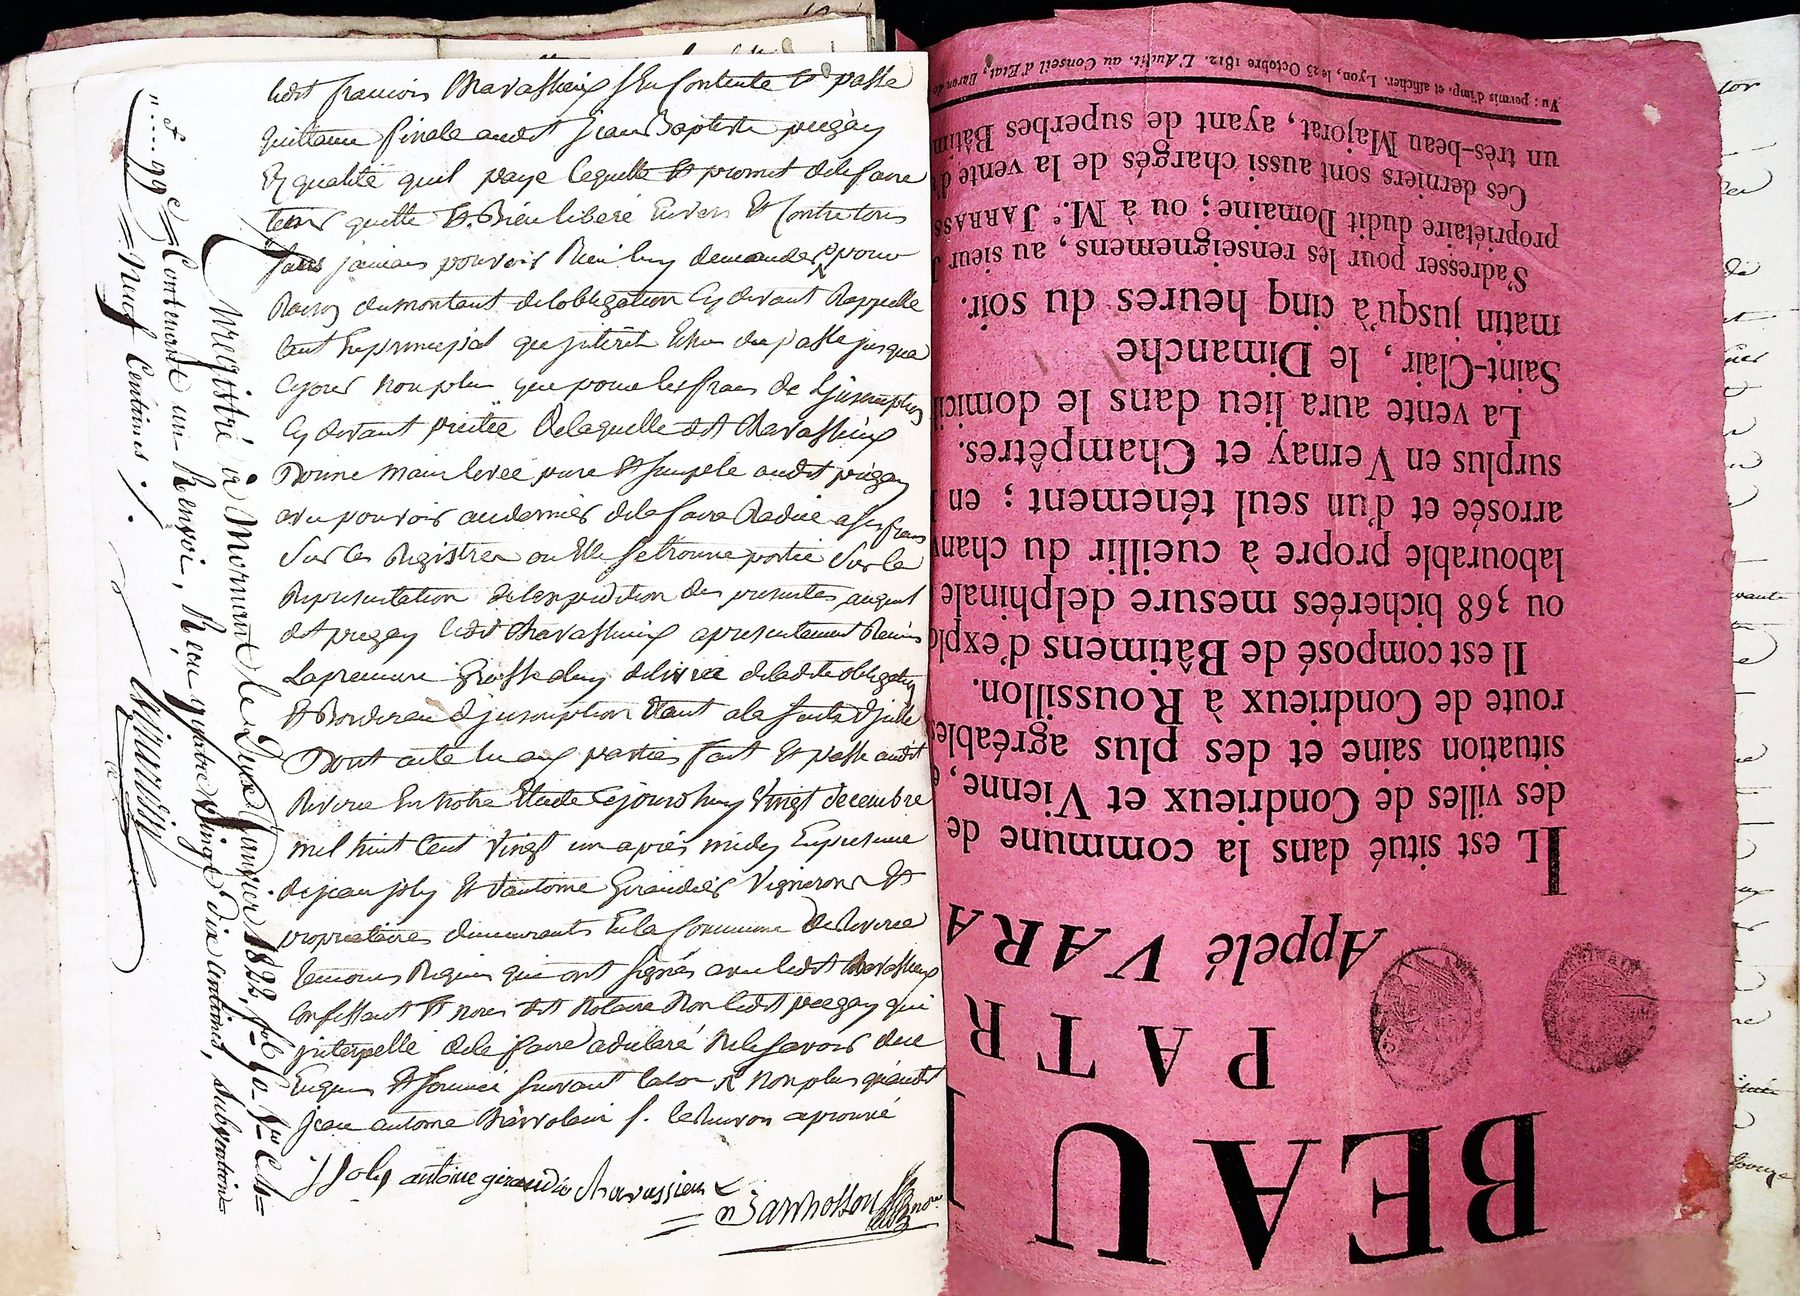 ledit francois Chavassieux s'en contente et passe
quittance finale audit Jean Baptiste pregay
En qualité quil paye laquelle et promet de le faire
tenir quitte et Bien libéré Envers et Contre tous
sans jamais pouvoir Rien luy demander pour
Raison du montant de lobligation Cy devant Rappellé
tant En principal que intérêt Echu du passé jusqua
Ce jour non plus que pour les frais de L'inscription
Cy devant De laquelle dit Chavassieux
Donne main levée pure et simple audit pregay
avec pouvoir au dernier de la faire Radié a ses frais
Sur les Registres ou Elle se trouve portée Sur la
Representation de lexpedition des presentes, auquel
dit pregay ledit Chavassieux a presentement Remis
La premiere Grosse a luy delivrée de ladite obligation
et Bordereau d'inscription Etant a la suite d'icelle
Dont acte lu aux parties fait et passé audit
Riverie En notre Etude Cejourdhuy Vingt decembre
mil huit Cent Vingt un après midy En presence
de jean joly et d'antoine Giraudier Vignerons et
proprietaires demeurants En la Commune de Riverie
temoins Requis qui ont signés avec ledit Chavassieux
Confessant et nous dit Notaire Non ledit pregay qui
interpellé de le faire a declaré Ne le savoir de ce
Enquis et sommé suivant la loi et Non plus quandit
jean antoine
J Joly antoine giraudié Chavassieux
Enregistré à Mornant le Dix Janvier 1822, fol
et Contenant un Renvoi, Reçu quatre Vingt dix centimes, subvention
Neuf Centimes.
BEAU
PATR
Appelé VARA
IL est situé dans la commune de
des villes de Condrieux et Vienne,
situation saine et des plus agréables
route de Condrieux à Roussillon.
Il est composé de Bâtimens d'explo
ou 368 bicherées mesure delphinale
labourable propre à cueillir du chanv
arrosée et d'un seul ténement ; en
surplus en Vernay et Champêtres.
La vente aura lieu dans le domicil
Saint-Clair, le Dimanche
matin jusqu'à cinq heures du soir.
S'adresser pour les renseignemens, au sieur J
propriétaire dudit Domaine ; ou à M.e JARRASS
Ces derniers sont aussi chargés de la vente d'
un très-beau Majorat, ayant de superbes Bâtim
Vu : permis d'imp. et afficher. Lyon, le 23 Octobre 1812. L'Audit. au Conseil d'Etat, Baron de